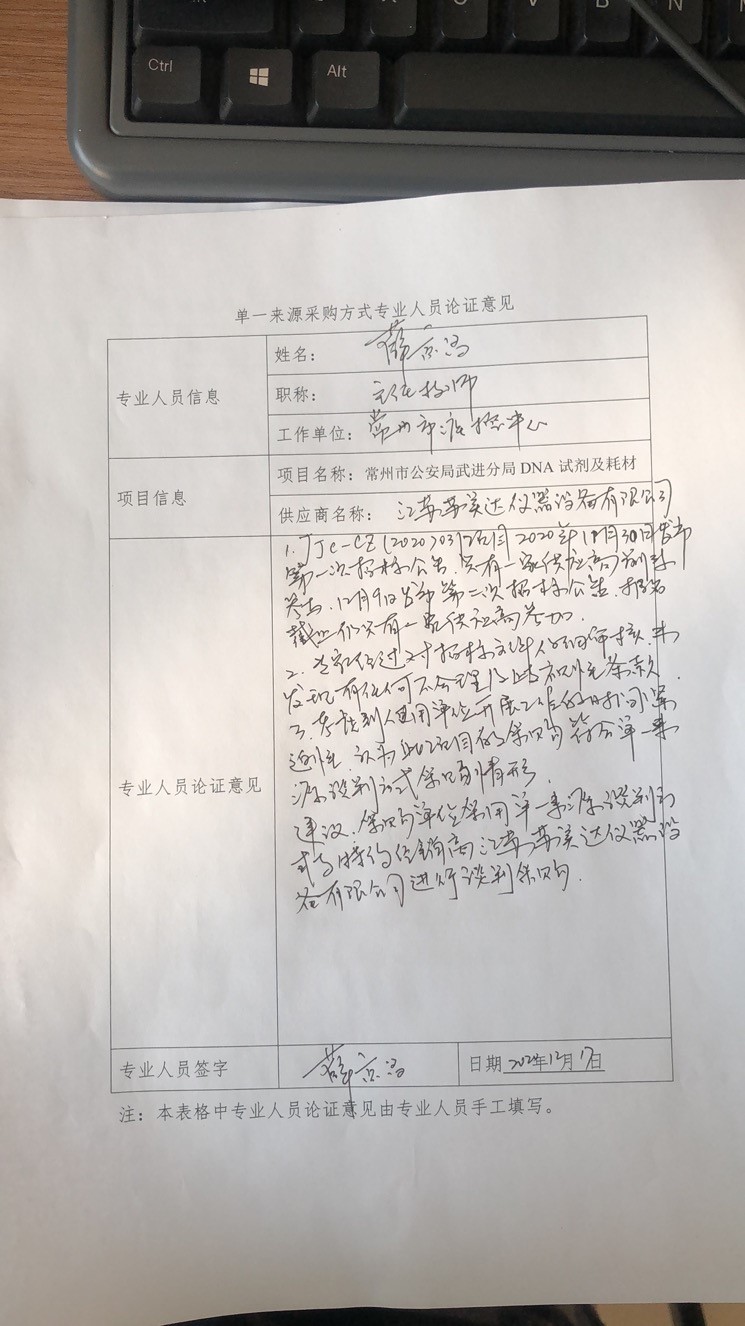 Ctrl
Alt
V
B
N
单一来源采购方式专业人员论证意见
专业人员信息
姓名：薛
职称：主任技师
工作单位：常州市疾控中心
项目信息
项目名称：常州市公安局武进分局DNA试剂及耗材
供应商名称：江苏苏美达仪器设备有限公司
专业人员论证意见
1. JJC-CZ(2020)0312项目2020年11月30日发布
第一次招标公告，只有一家供应商前来
参与，12月9日发布第二次招标公告，报名
截止仍只有一家供应商参加。
2. 专家经过对招标文件的审核，未
发现有任何不合理及歧视性条款。
3. 考虑到使用单位开展工作的时间紧
迫性，认为此项目的采购符合单一来
源谈判方式采购情形。
建议，采购单位采用单一来源谈判方
式与特约经销商江苏苏美达仪器设
备有限公司进行谈判采购。
专业人员签字 薛
日期 2020年12月17日
注：本表格中专业人员论证意见由专业人员手工填写。